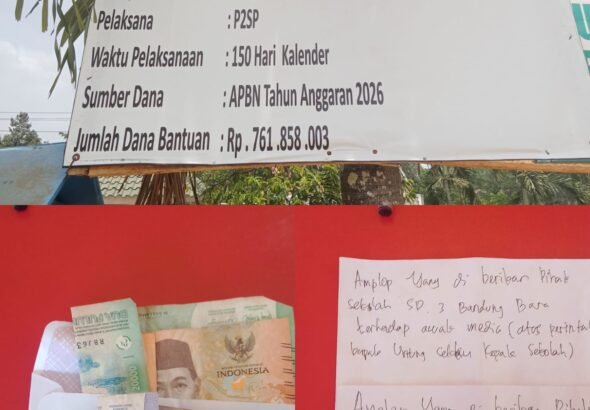 Pelaksana : P2SP
Waktu Pelaksanaan : 150 Hari Kalender
Sumber Dana : APBN Tahun Anggaran 2026
Jumlah Dana Bantuan : Rp. 761.858.003
INDONESIA
Amplop Yang di beriban Pihak
sekolah SD. 3 Bandung Baru
terhadap awak media (atas perintah
bapak Untung selaku Kepala Sekolah)
Amplop Yang di beriban